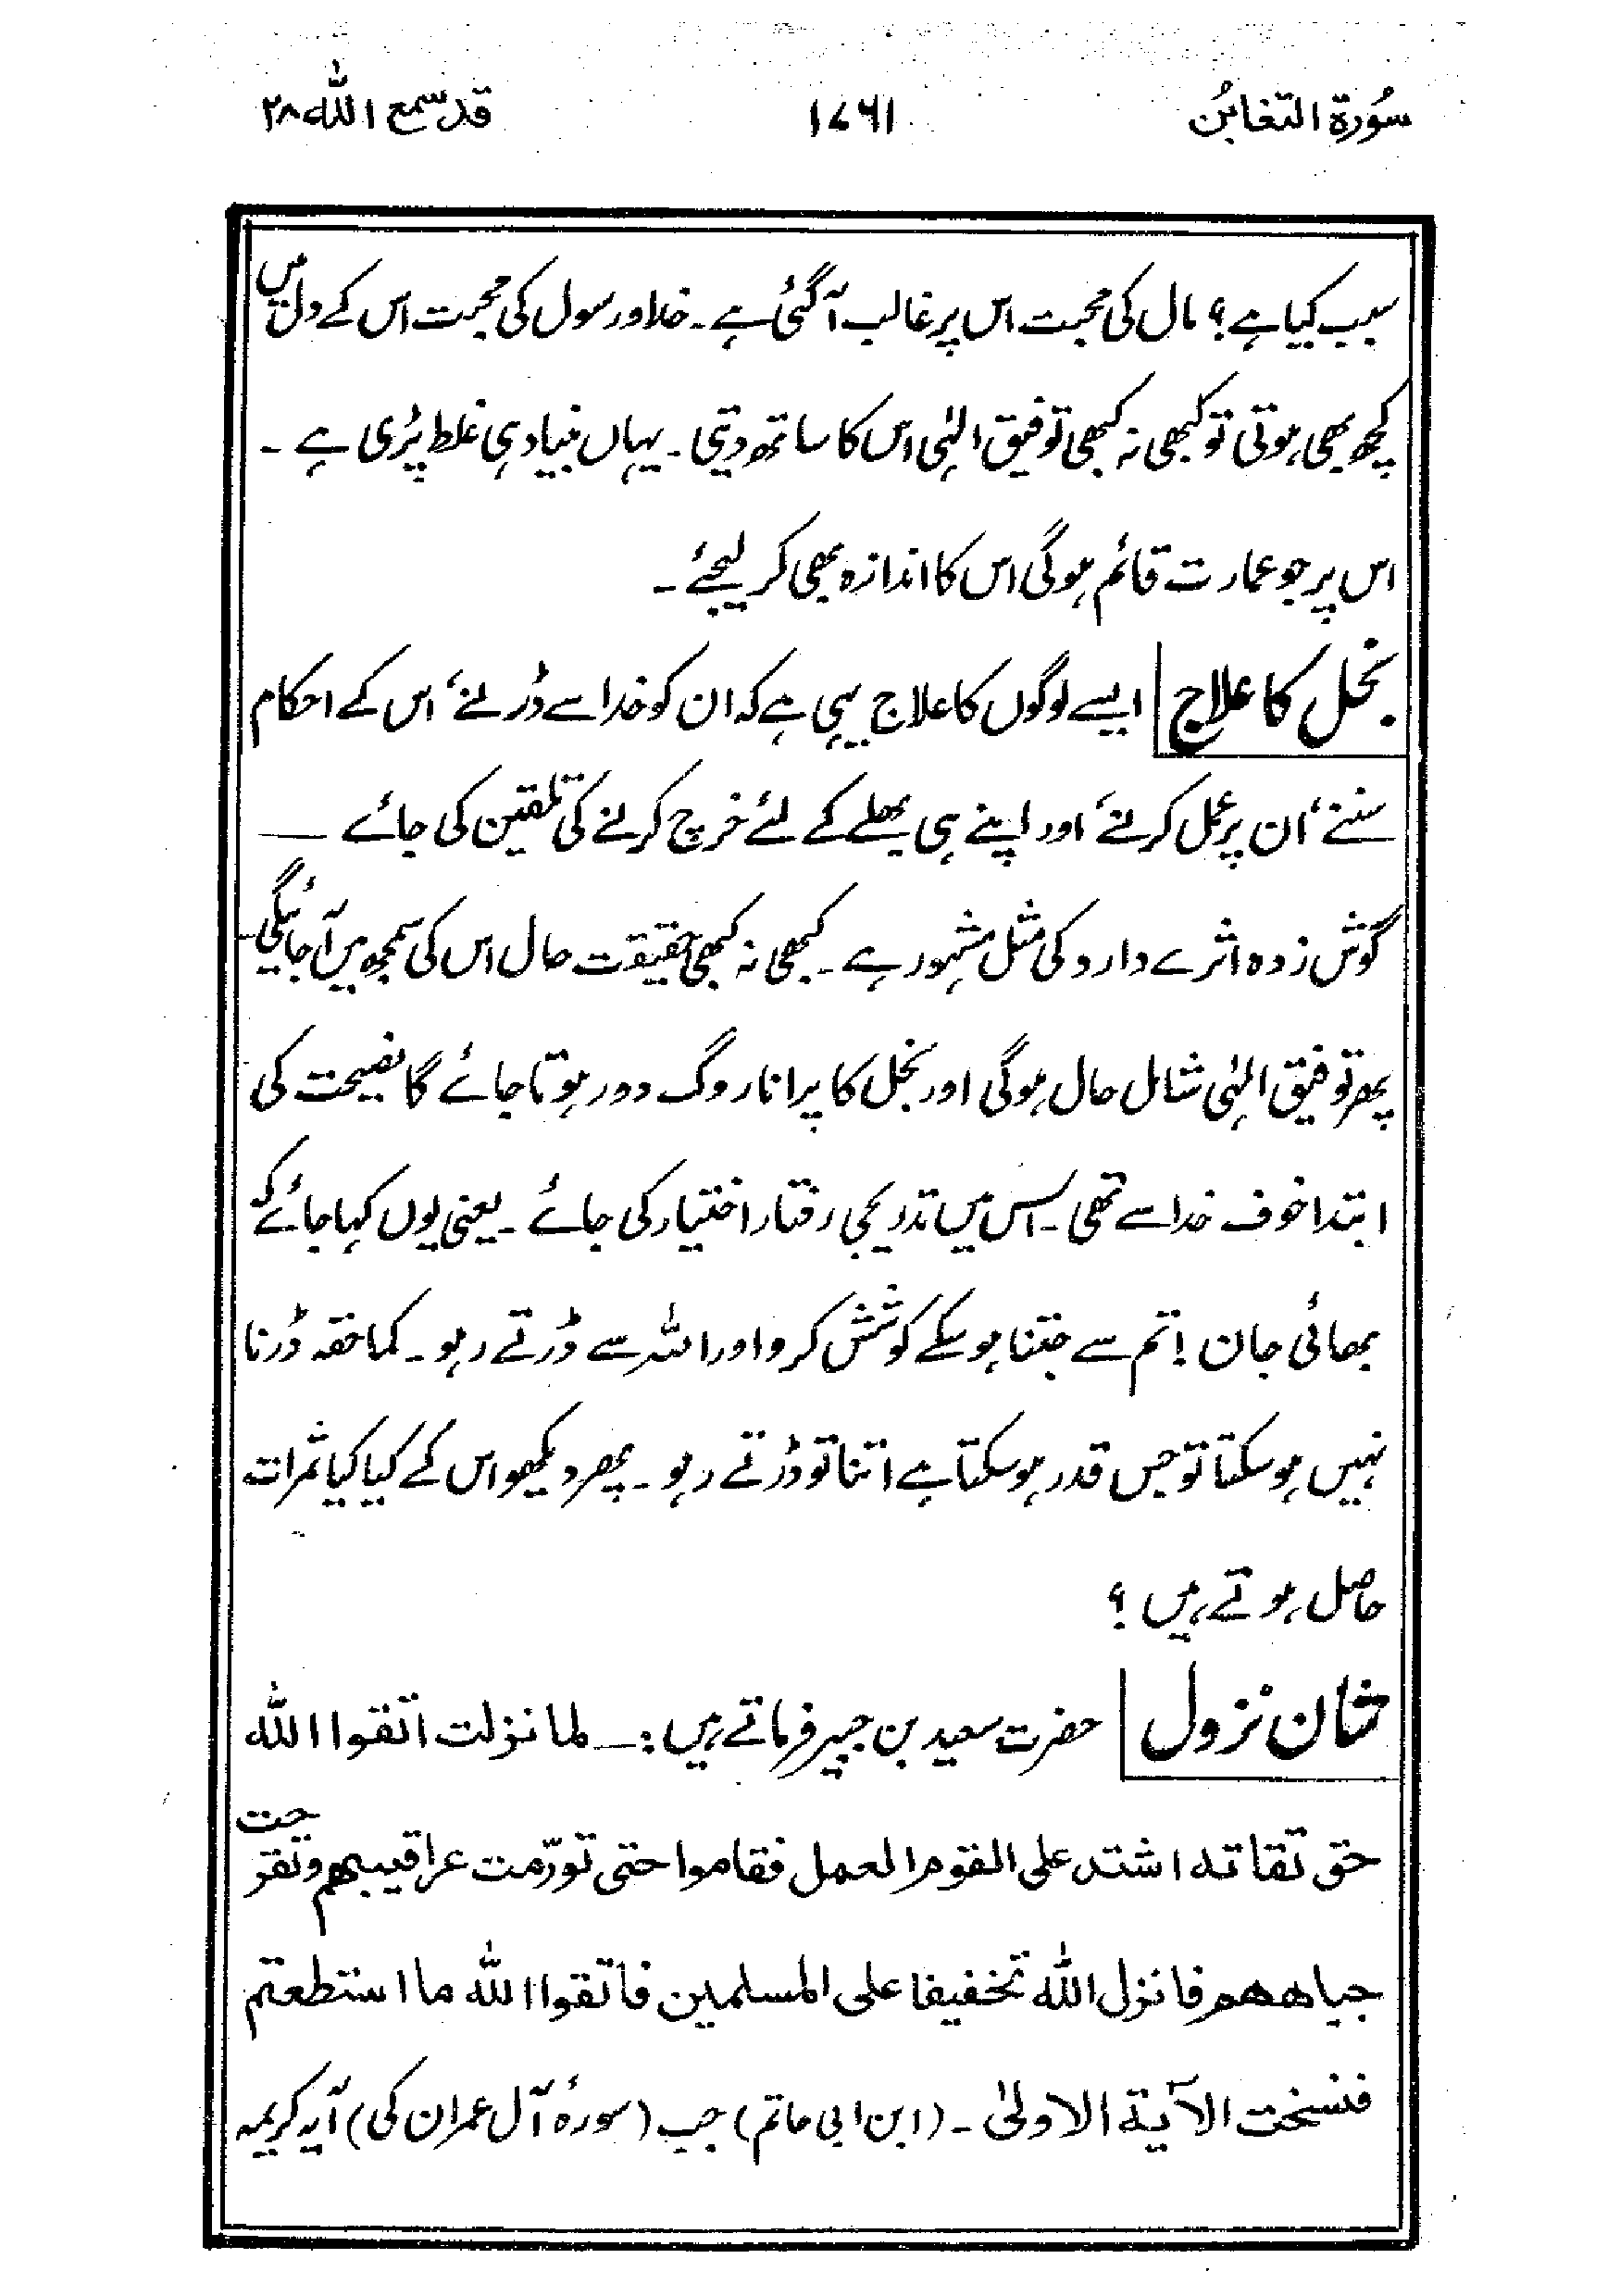 سُورة التغابُن ۱۷۶۱ قد سمع الله ۲۸
سبب کیا ہے؟ مال کی محبت اس پر غالب آگئی ہے۔ خدا و رسول کی محبت اس کے دل میں
کچھ بھی ہوتی تو کبھی نہ کبھی توفیق الہٰی اس کا ساتھ دیتی۔ یہاں بنیاد ہی غلط پڑی ہے۔
اس پر جو عمارت قائم ہوگی اس کا اندازہ بھی کر لیجئے۔
بخل کا علاج ایسے لوگوں کا علاج یہی ہے کہ ان کو خدا سے ڈرنے، اس کے احکام
سننے، ان پر عمل کرنے، اور اپنے ہی بھلے کے لئے خرچ کرنے کی تلقین کی جائے ــــ
گوش زدہ اثرے دارد کی مثل مشہور ہے۔ کبھی نہ کبھی حقیقت حال اس کی سمجھ میں آجائیگی۔
پھر توفیق الہٰی شامل حال ہوگی اور بخل کا پرانا روگ دور ہوتا جائے گا نصیحت کی
ابتدا خوف خدا سے تھی۔ اس میں تدریجی رفتار اختیار کی جائے۔ یعنی یوں کہا جائے کہ
بھائی جان! تم سے جتنا ہوسکے کوشش کرو اور اللہ سے ڈرتے رہو۔ کماحقہ ڈرنا
نہیں ہوسکتا تو جس قدر ہوسکتا ہے اتنا تو ڈرتے رہو۔ پھر دیکھو اس کے کیا کیا ثمرات
حاصل ہوتے ہیں؟
شان نزول حضرت سعید بن جبیر فرماتے ہیں:ــ لما نزلت اتقوا الله
حق تقاته اشتد على القوم العمل فقاموا حتى تورّمت عراقيبهم وتقرحت
جباههم فانزل الله تخفيفا على المسلمين فاتقوا الله ما استطعتم
فنسخت الآية الاولىٰ۔ (ابن ابی حاتم) جب (سورۂ آل عمران کی) آیہ کریمہ